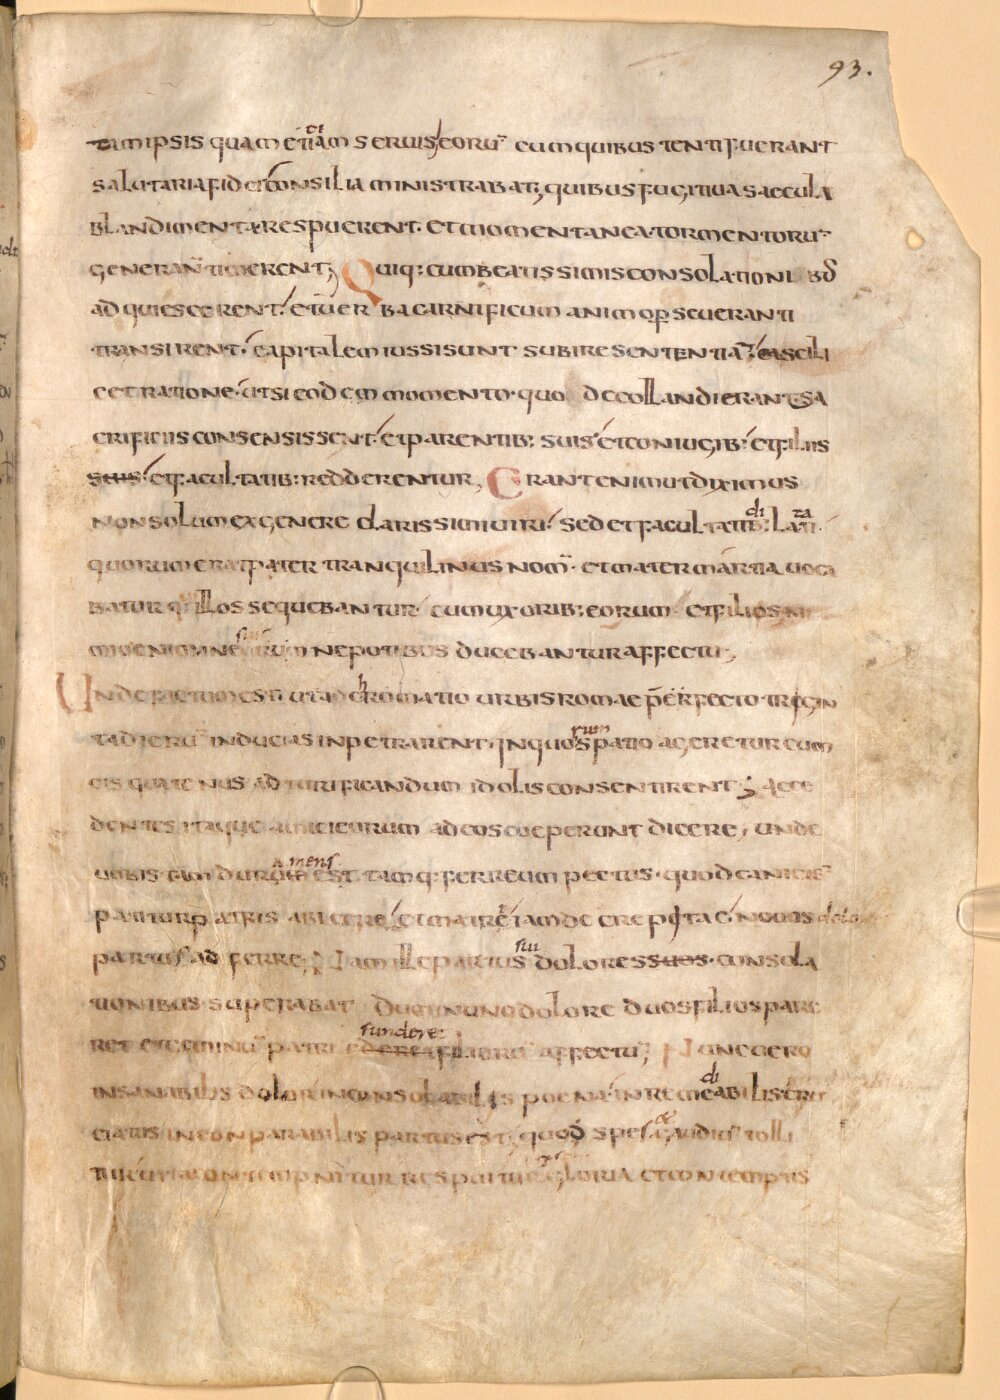 93.
tam ipsis quam etiam servis eoru¯ cum quibus tenti fuerant
salutaria fidei consilia ministrabat; quibus fugitiva saecula
blandimenta respuerent. et momentanea tormentoru¯
genera n¯ timerent; Quiq: cum beatissimis consolationib;
adquiescerent. et verba carnificum animo p̱severanti
transirent. capitalem iussi sunt subire sententia¯.
cet ratione. ut si eodem momento. quo decollandi erant. sa
crificiis consensissent. et parentib: suis et coniugib: et filiis
suis. et facultatib: redderentur, Erant enim ut diximus
non solum ex genere clarissimi viri. sed et facultatib: ditati
quorum erat pater tranquilinus nom̄. et mater martia voca
batur q; illos sequebantur cum uxorib: eorum et filios
nepotibus ducebantur affectu,
Unde factum est. ut ad chromatio urbis romae p̄fecto trigin
ta dieru¯ inducias inpetrarent. in quorum spatio ageretur cum
eis quatenus ad turificandum idolis consentirent; Acce
dentes itaque amici eorum ad eos coeperunt dicere, unde
vobis tam dura mens est tamq: ferreum pectus. quod canitie¯
patris abicere. et matre iam decrepita novos dolo
partus adferre; Nam ille partus sui dolores suos. consola
tionibus superabat Dum in uno dolore duos filios pare
ret et geminu¯ patri fundere affectu¯; Nunc vero
insanabilis dolor inconsolabilis poena inremediabilis cru
ciatus inconparabilis partus est, quod spes et gaudiu¯ tolli
tur vita contempnitur respuitur gloria et contemptis